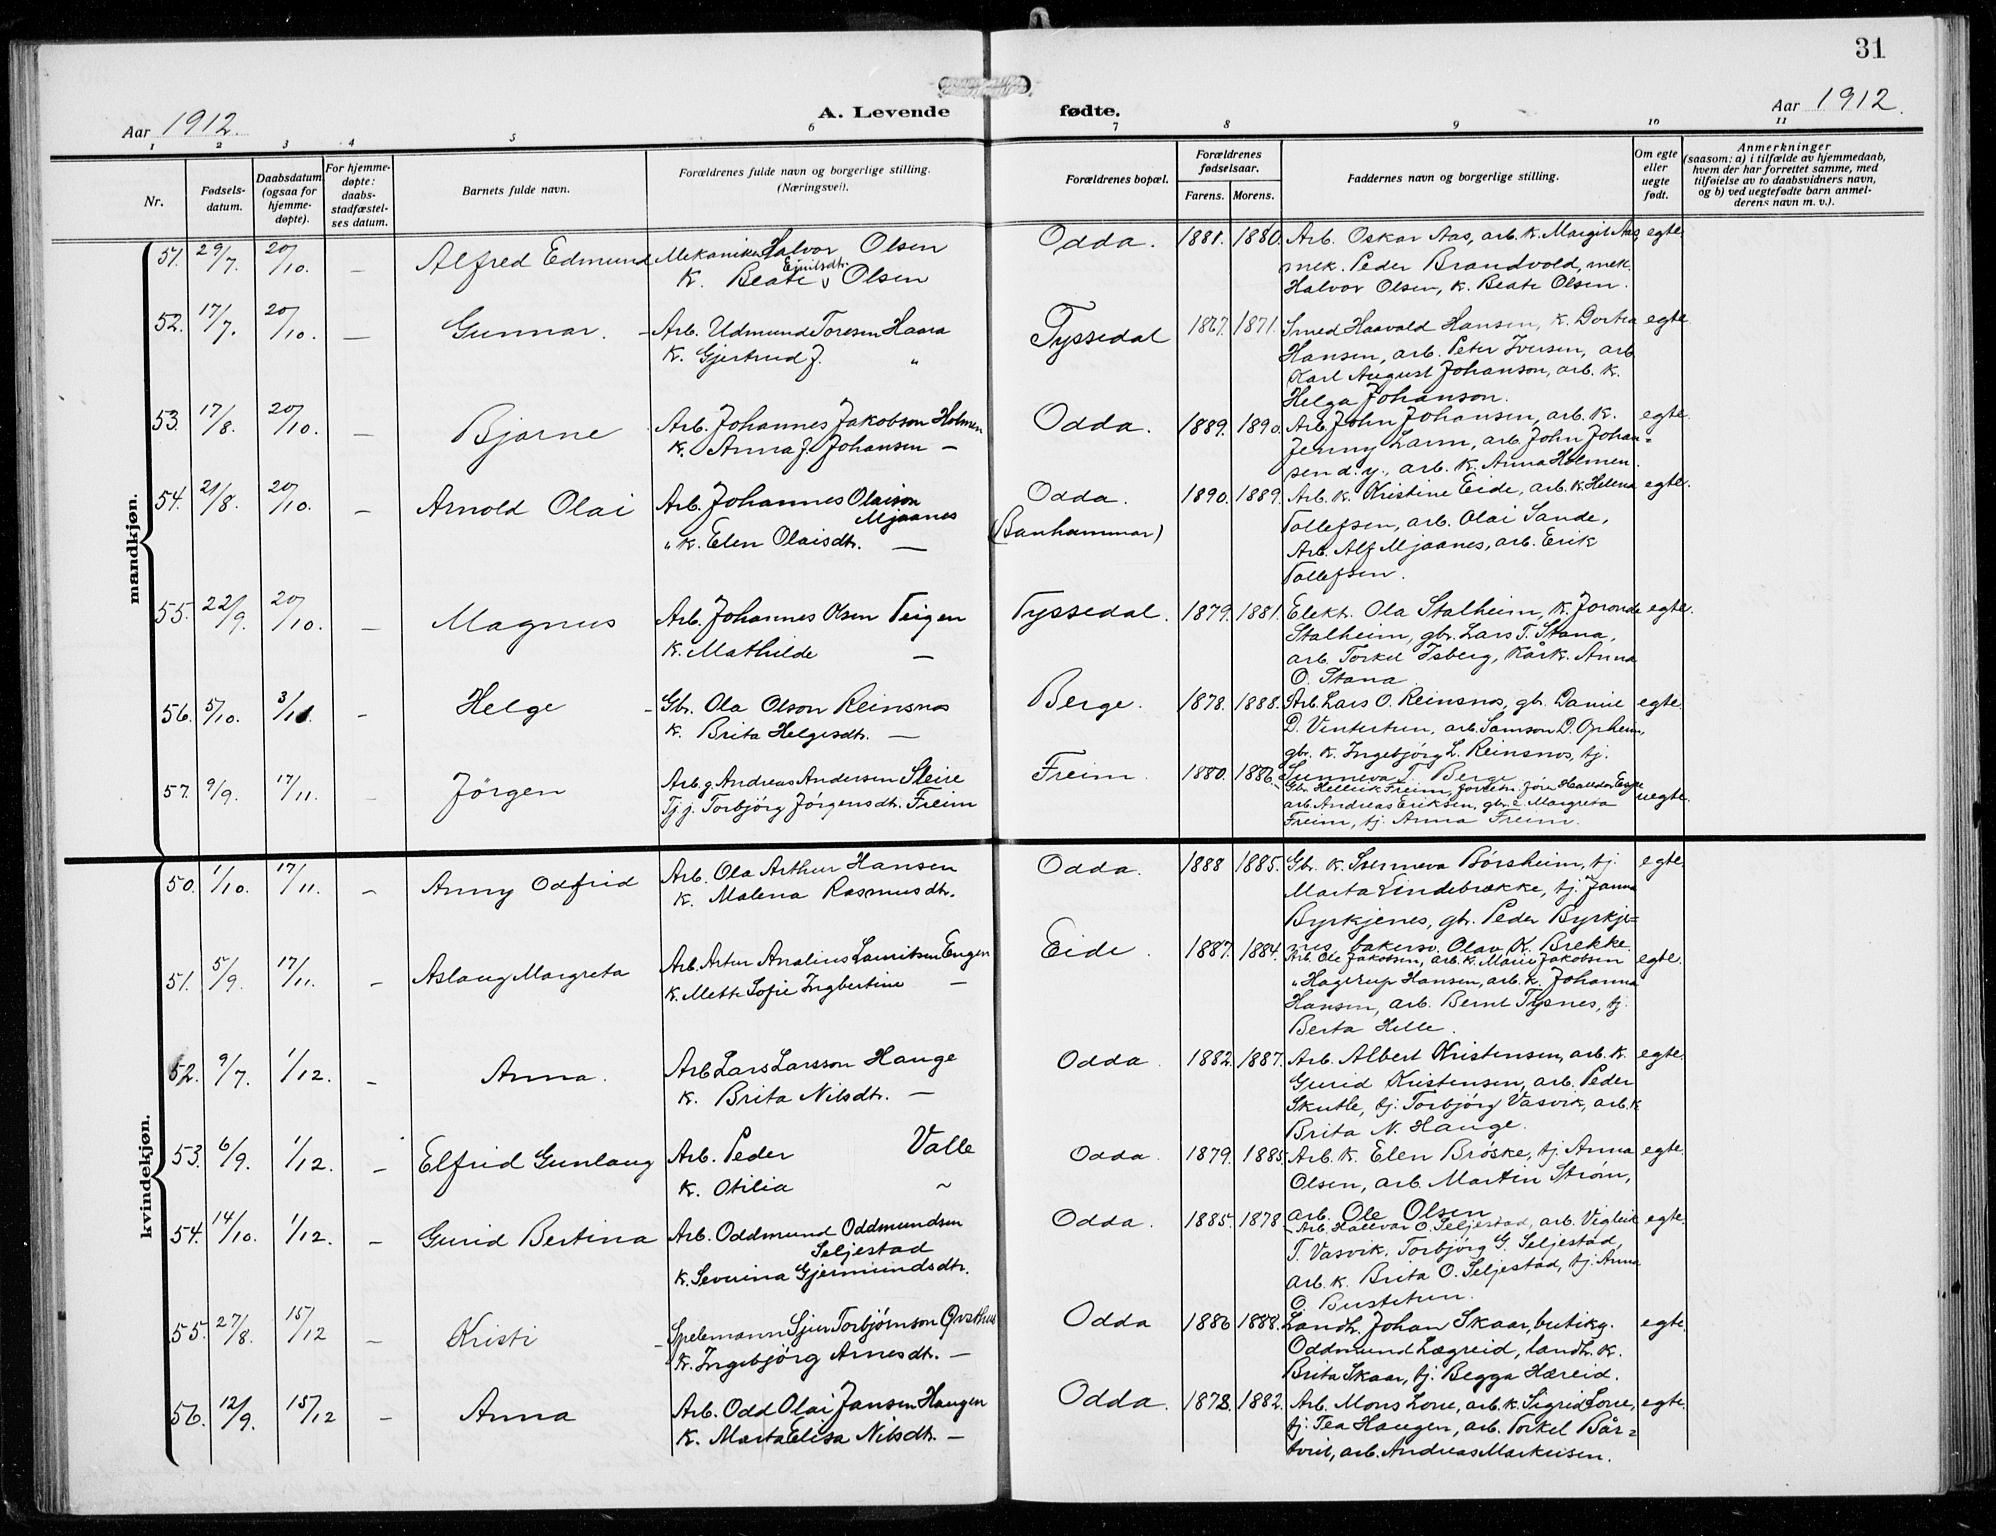 31
Aar 1912. A. Levende fødte. Aar 1912.
1 2 3 4 5 6 7 8 9 10 11
Nr.
Fødsels-
datum.
Daabsdatum
(ogsaa for
hjemme-
døpte).
For hjemme-
døpte:
daabs-
stadfæstel-
ses datum.
Barnets fulde navn.
Forældrenes fulde navn og borgerlige stilling.
(Næringsvei).
Forældrenes bopæl.
Forældrenes
fødselsaar.
Farens. Morens.
Faddernes navn og borgerlige stilling.
Om egte
eller
uegte
født.
Anmerkninger
(saasom: a) i tilfælde av hjemmedaab,
hvem der har forrettet samme, med
tilføielse av to daabsvidners navn,
og b) ved uegtefødte barn anmel-
derens navn m. v.).
mandkjøn.
51. 29/7. 20/10. — Alfred Edmund Mekaniker Halvor Olsen Odda. 1881. 1880. Arb. Oskar Aas, arb. k. Margit Aas, egte
Emilsdtr.
k. Beate Olsen mek. Peder Brandvold, mek.
Halvor Olsen, k. Beate Olsen.
52. 17/7. 20/10. — Gunnar. Arb. Udmund Toresen Haara Tyssedal 1867. 1871. Smed Haavald Hansen, k. Dortea egte
k. Gjertrud J. " Hansen, arb. Peter Iversen, arb.
Karl August Johanson, arb. k.
Helga Johanson.
53. 17/8. 20/10. — Bjarne Arb. Johannes Jakobson Holmen Odda. 1889. 1890. Arb. John Johansen, arb. k. egte
k. Anna J. Johansen — Jenny Larm, arb. John Johan-
sen d. y., arb. k. Anna Holmen.
54. 21/8. 20/10. — Arnold Olai Arb. Johannes Olaison Odda. 1890. 1889. Arb. k. Kristine Eide, arb. k. Helena egte.
Mjaanes (Banhammar) Tollefsen, arb. Olai Sande,
" k. Elen Olaisdtr. — Arb. Alf Mjaanes, arb. Erik
Tollefsen.
55. 22/9. 20/10. — Magnus Arb. Johannes Olsen Teigen Tyssedal. 1879. 1881. Elektr. Ola Stalheim, k. Joronde egte.
k. Mathilde — Stalheim, gbr. Lars T. Stana,
arb. Torkel Isberg, Kårk. Anna
O. Stana.
56. 5/10. 3/11. - Helge Gbr. Ola Olson Reinsnos Berge. 1878. 1888. Arb. Lars O. Reinsnos, gbr. Daniel egte.
k. Brita Helgesdtr. — D. Vintertun, arb. Samson D. Opheim,
gbr. k. Ingebjörg L. Reinsnos, tj.
Sunneva T. Berge
57. 9/9. 17/11. — Jörgen Arb. g. Andreas Andersen Steire Freim. 1880. 1886. Gbr. Hellик Freim, forretn. före Halldor Espe uegte.
Tj. j. Torbjörg Jörgensdtr. Freim arb. Andreas Eriksen, gbr. e. Margreta
Freim, tj. Anna Freim.
kvindekjøn.
50. 1/10. 17/11. — Anny Odfrid Arb. Ola Arthur Hansen Odda. 1888 1885. Gbr. k. Sunneva Börsheim, tj. egte.
k. Malena Rasmusdtr. Marta Lindebrække, tj. Janna
Byrkjenes, gbr. Peder Byrkje-
nes, bakersv. Olav K. Brekke.
51. 5/9. 17/11. — Aslaug Margreta Arb. Artur Analius Lauritsen Engen Eide. 1887. 1884. Arb. Ole Jakobsen, arb. k. Marie Jakobsen egte.
k. Mette Sofie Ingbertine — " Hagerup Hansen, arb. k. Johanna
Hansen, arb. Bernt Tysnes, tj.
Berta Helle.
52. 9/7. 1/12. — Anna. Arb. Lars Larsson Hauge Odda. 1882. 1887. Arb. Albert Kristensen, arb. k. egte.
k. Brita Nilsdtr. — Gurid Kristensen, arb. Peder
Skutle, tj. Torbjörg Vasvik, arb. k
Brita N. Hauge.
53. 6/9. 1/12. — Elfrid Gunlaug Arb. Peder Valle Odda. 1879. 1885. Arb. k. Elen Bröske, tj. Anna egte.
k. Otilia ~ Olsen, arb. Martin Ström,
arb. Ole Olsen
54. 14/10. 1/12. — Gurid Bertina Arb. Oddmund Oddmundsen Odda. 1885. 1878 Arb. Hallvar O. Seljestad, arb. Vigleik egte.
Seljestad T. Vasvik. Torbjörg G. Seljestad,
k. Severina Gjermundsdtr. arb. k. Brita O. Seljestad, tj. Anna
O. Bustetun.
55. 27/8. 15/12 — Kristi Spelemann Sjur Torbjörnson Qvsthus Odda 1886 1888. Landh. Johan Skaar, butikg. egte.
k. Ingebjörg Arnesdtr. — Oddmund Lægreid, landh. k.
Brita Skaar, tj. Begga Hæreid.
56. 12/9. 15/12 — Anna Arb. Odd Olai Jansen Haugen Odda. 1878. 1882. Arb. Mons Lone, arb. k. Sigrid Lone, egte.
k. Marta Elisa Nilsdtr. — tj. Tea Haugen, arb. Torkel Bår-
tveit, arb. Andreas Markusen.